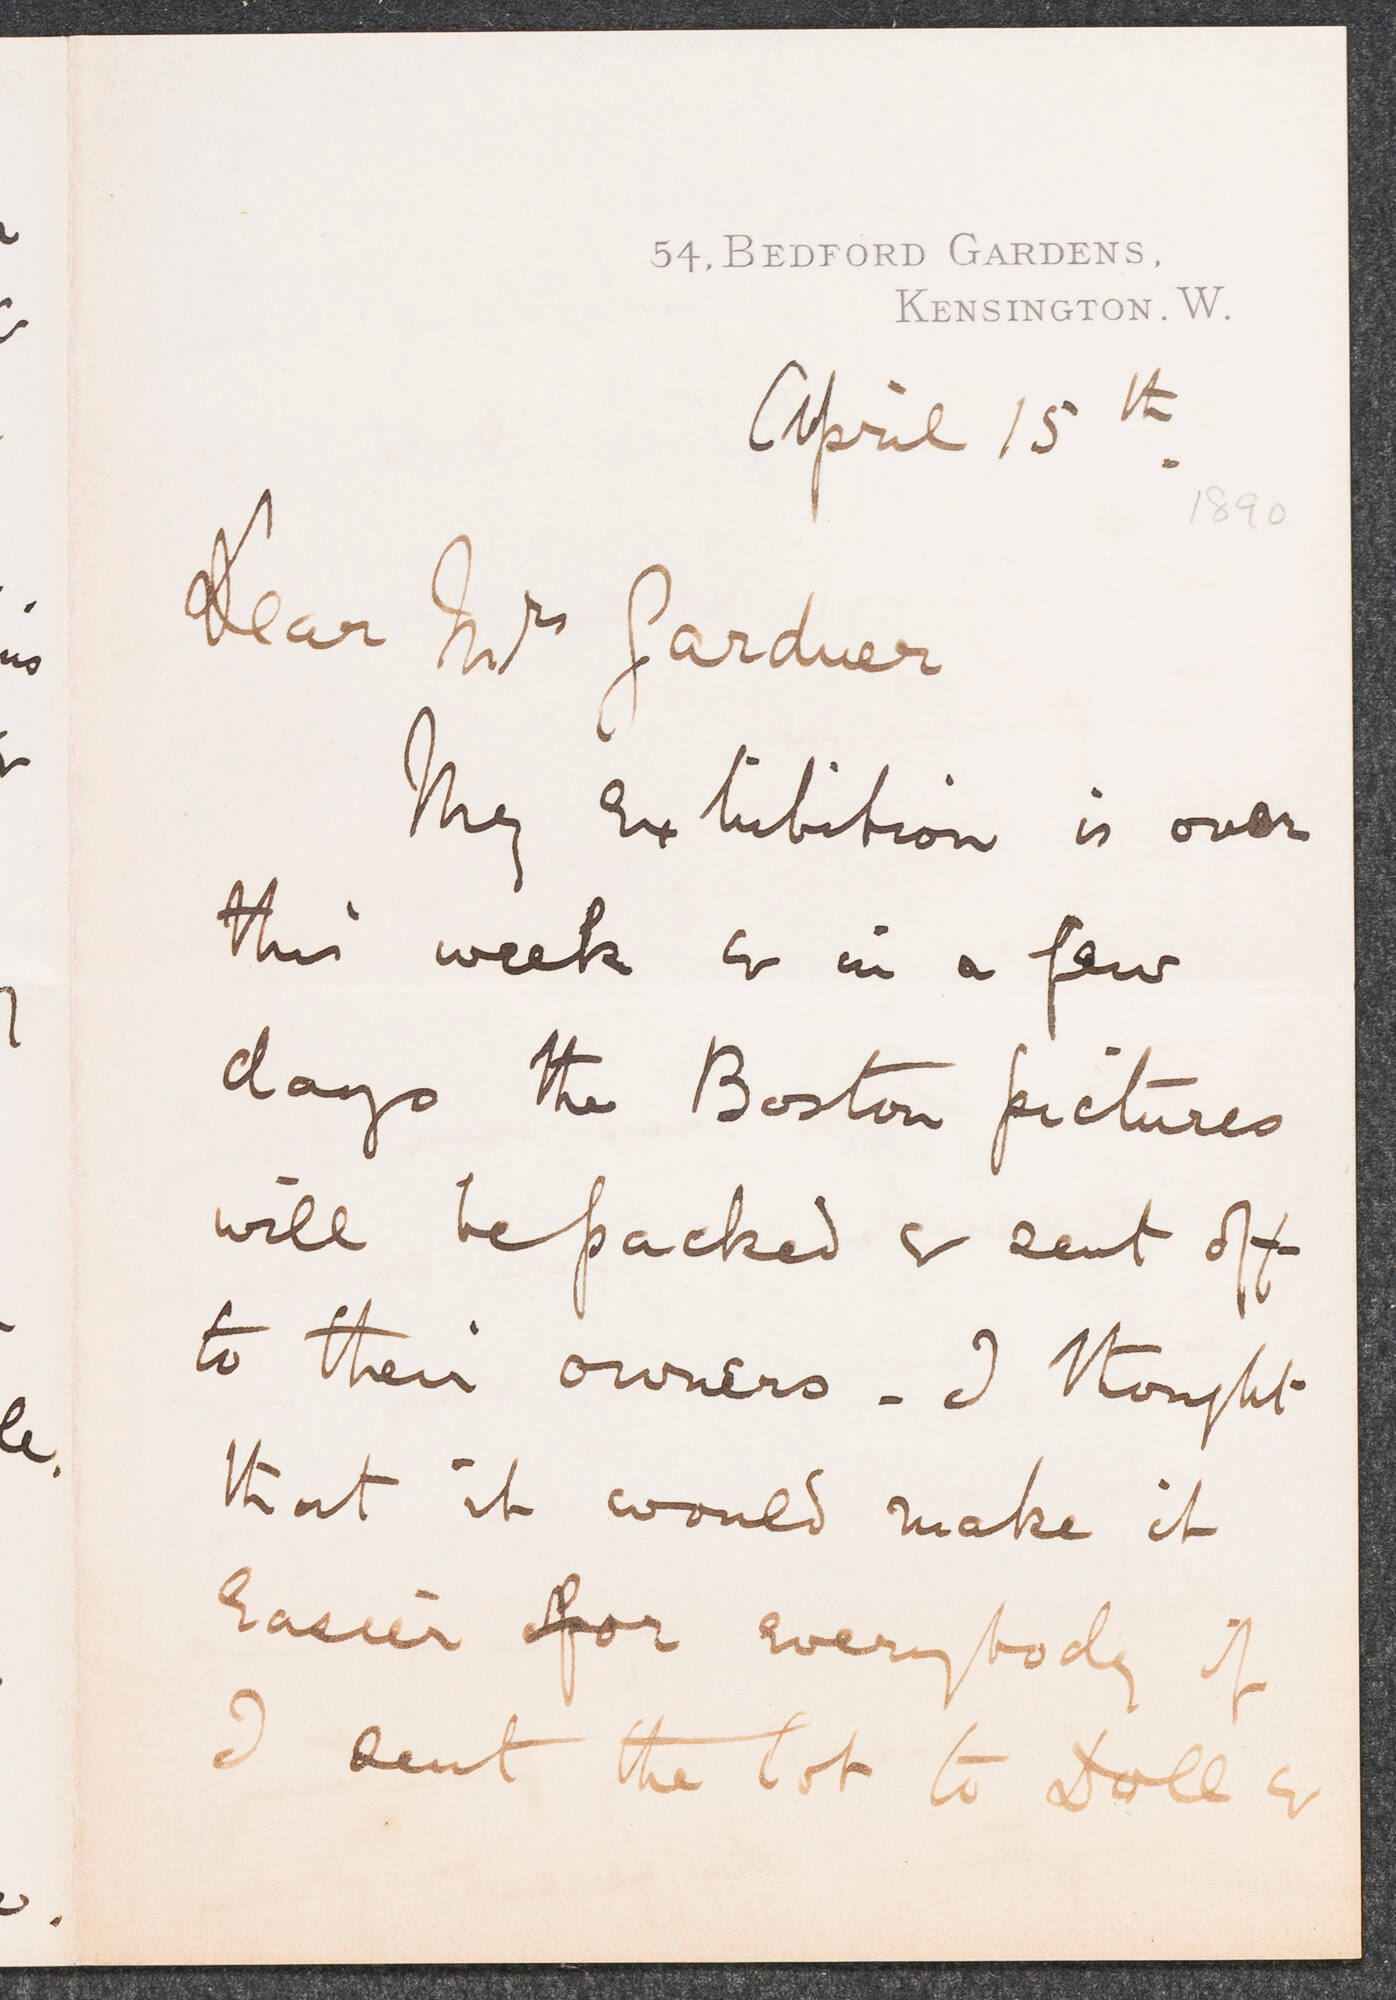 54, Bedford Gardens,
Kensington. W.
April 15th.
1890
Dear Mrs Gardner
My exhibition is over
this week & in a few
days the Boston pictures
will be packed & sent off
to their owners - I thought
that it would make it
easier for everybody if
I sent the lot to Doll &